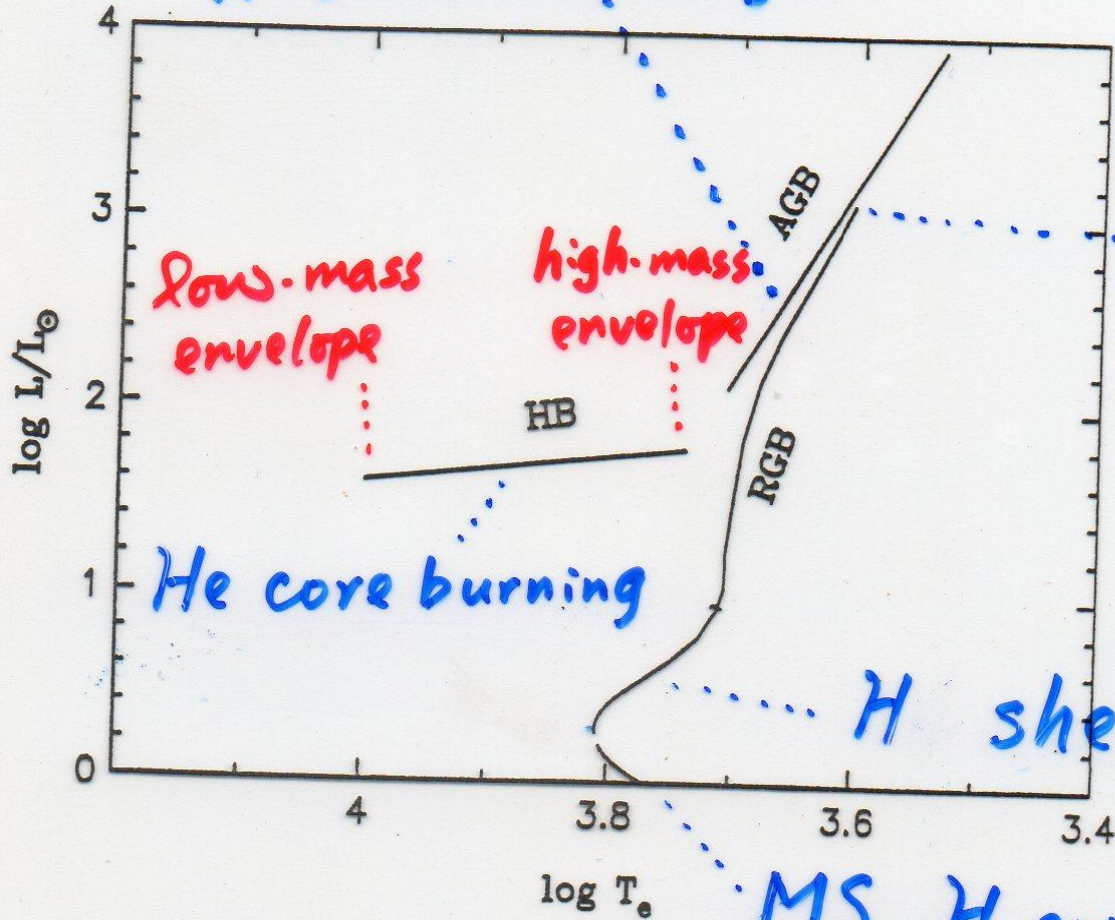 4
3
2
1
0
log L/L☉
AGB
low-mass
envelope
high-mass
envelope
HB
RGB
He core burning
H she
4
3.8
3.6
3.4
log Tₑ
MS H